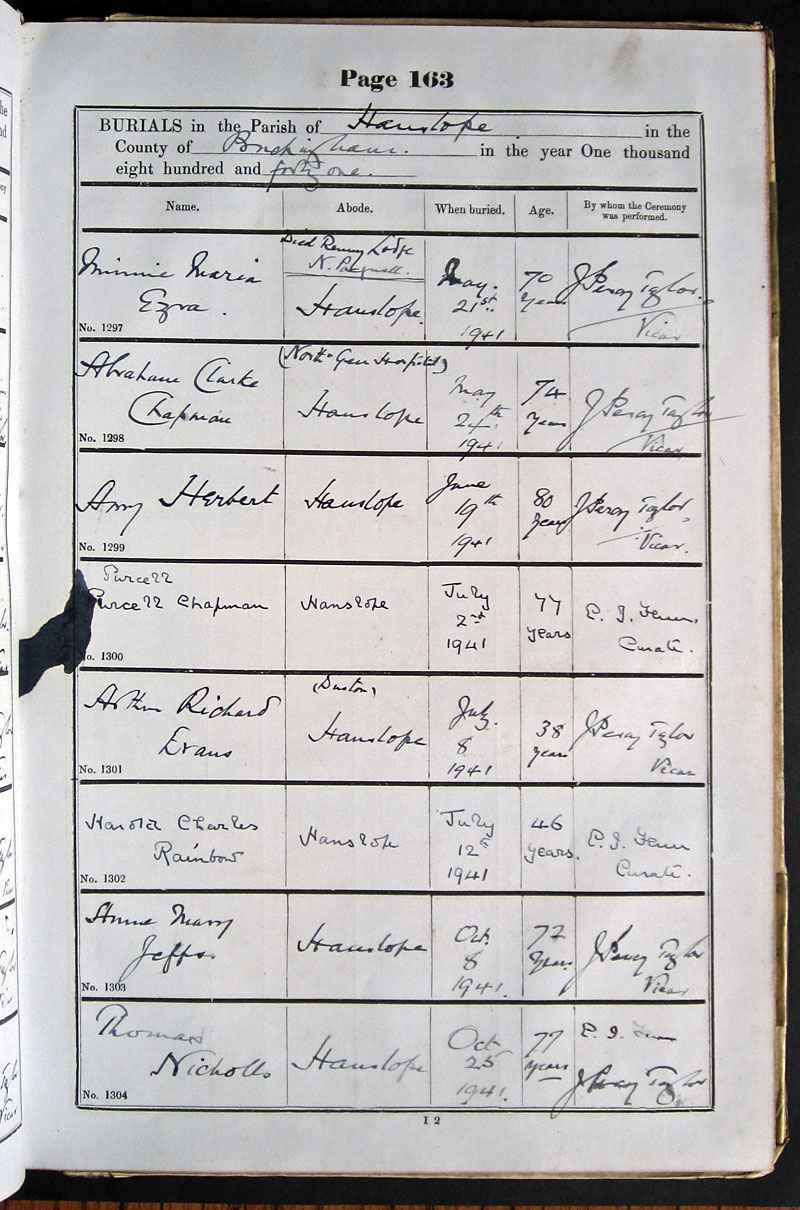 Page 163
BURIALS in the Parish of Hanslope in the
County of Buckingham. in the year One thousand
eight hundred and forty one.
Name. Abode. When buried. Age. By whom the Ceremony was performed.
Died Renny Lodge
N. Pagnell.
Minnie Maria
Ezra.
Hanslope.
May.
21st
1941
70
Years
J Percy Taylor.
Vicar
No. 1297
(North'n Gen Hospital)
Abraham Clarke
Chapman
Hanslope
May
24th
1941
74
Years
J Percy Taylor
Vicar
No. 1298
Amy Herbert
Hanslope
June
19th
1941
80
Years
J Percy Taylor
Vicar.
No. 1299
Purcell
Purcell Chapman
Hanslope
July
2nd
1941
77
years
E. J. Fenn.
Curate.
No. 1300
(Duston)
Arthur Richard
Evans
Hanslope
July.
8
1941
38
years
J Percy Taylor
Vicar
No. 1301
Harold Charles
Rainbow
Hanslope
July
12th
1941
46
years.
E. J. Fenn
Curate.
No. 1302
Annie Mary
Jeffs.
Hanslope
Oct.
8
1941.
72
Years
J Percy Taylor
Vicar
No. 1303
Thomas
Nicholls
Hanslope
Oct
25
1941.
77
years
E. J. Fenn
J Percy Taylor
No. 1304
I 2